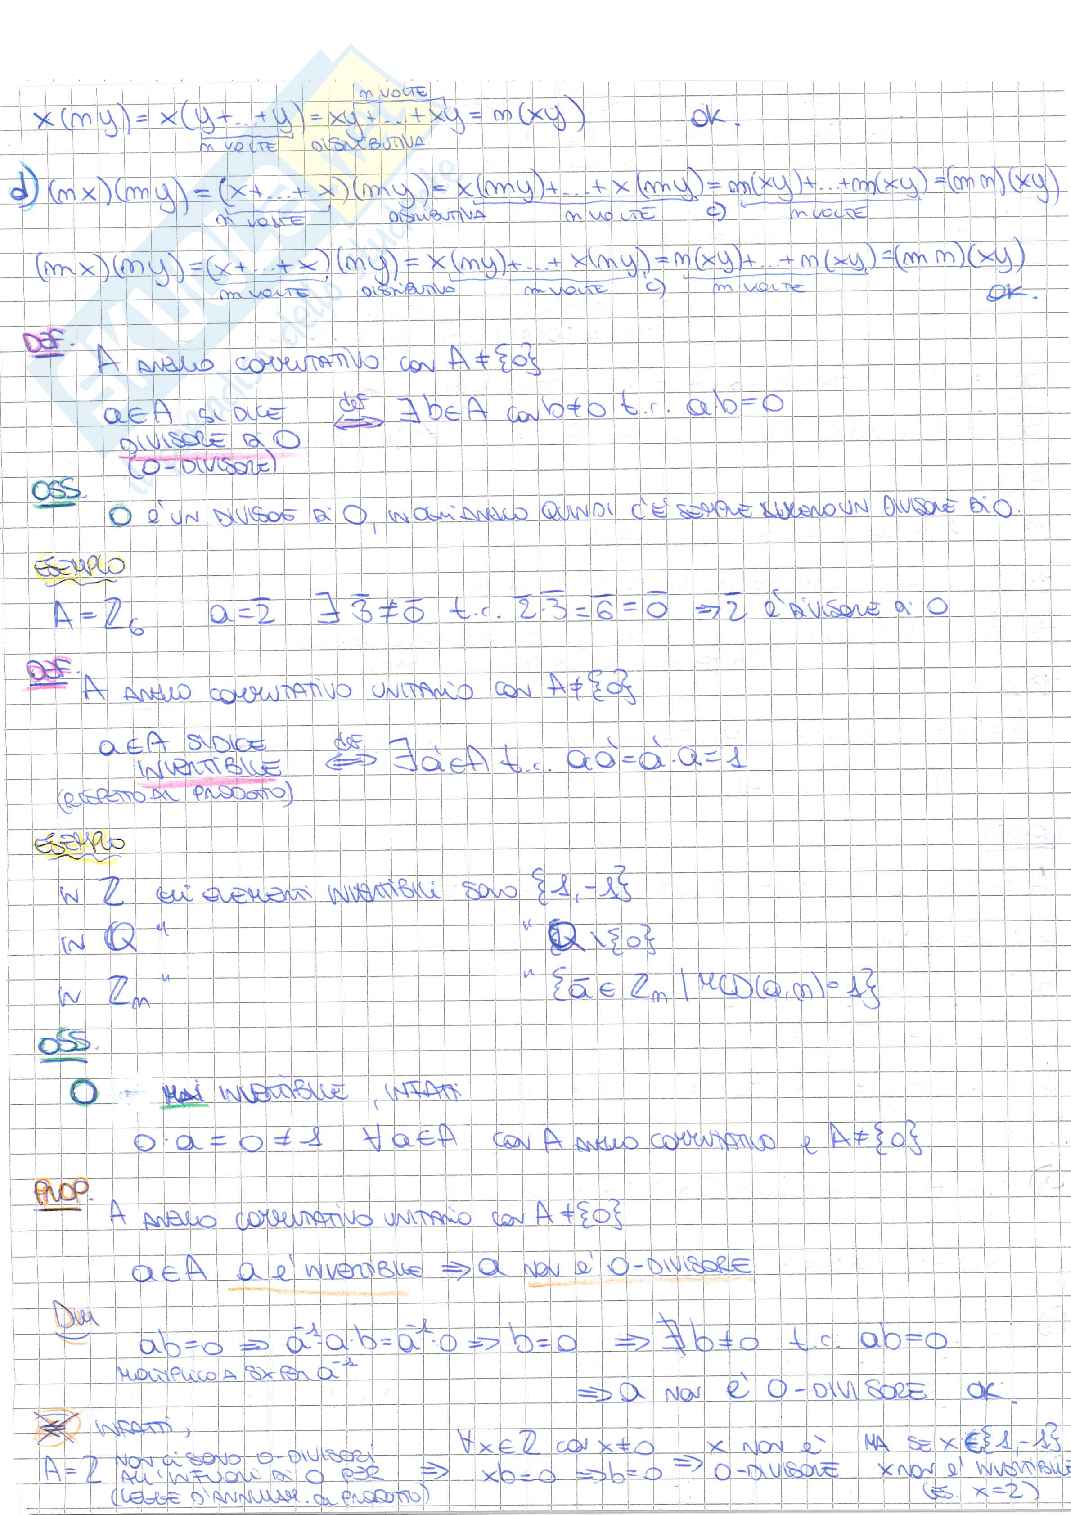 n VOLTE
x(ny) = x(y+...+y) = xy+...+xy = n(xy) OK.
n VOLTE DISTRIBUTIVA
d) (mx)(ny) = (x+...+x)(ny) = x(ny)+...+x(ny) = n(xy)+...+n(xy) = (mn)(xy)
m VOLTE DISTRIBUTIVA m VOLTE c) m VOLTE
(mx)(ny) = (x+...+x)(ny) = x(ny)+...+x(ny) = n(xy)+...+n(xy) = (mn)(xy)
m VOLTE DISTRIBUTIVA m VOLTE c) m VOLTE OK.
DEF.
A ANELLO COMMUTATIVO CON A ≠ {0}
a∈A SI DICE ⇔ def ∃ b∈A con b≠0 t.c. ab=0
DIVISORE DI 0
(0-DIVISORE)
OSS.
0 È UN DIVISORE DI 0, IN OGNI ANELLO QUINDI C'È SEMPRE ALMENO UN DIVISORE DI 0.
ESEMPIO
A = Z₆ a = 2̄ ∃ 3̄ ≠ 0̄ t.c. 2̄·3̄ = 6̄ = 0̄ ⇒ 2̄ È DIVISORE DI 0
DEF.
A ANELLO COMMUTATIVO UNITARIO CON A≠{0}
a∈A SI DICE ⇔ def ∃ a'∈A t.c. aa' = a'·a = 1
INVERTIBILE
(RISPETTO AL PRODOTTO)
ESEMPIO
IN Z GLI ELEMENTI INVERTIBILI SONO {1,-1}
IN Q " " Q \ {0}
IN Zₙ " " {ā ∈ Zₙ | MCD(a,n) = 1}
OSS.
0 MAI INVERTIBILE, INFATTI
0·a = 0 ≠ 1 ∀a∈A CON A ANELLO COMMUTATIVO E A≠{0}
PROP.
A ANELLO COMMUTATIVO UNITARIO CON A≠{0}
a∈A a È INVERTIBILE ⇒ a NON È 0-DIVISORE
Dim
ab=0 ⇒ a⁻¹·a·b = a⁻¹·0 ⇒ b=0 ⇒ ∄ b≠0 t.c. ab=0
MOLTIPLICO A SX PER a⁻¹
⇒ a NON È 0-DIVISORE OK.
INFATTI,
A=Z NON CI SONO 0-DIVISORI ALL'INFUORI DI 0 PER (LEGGE D'ANNULLAM. DEL PRODOTTO) ⇒ ∀x∈Z CON x≠0 xb=0 ⇒ b=0 ⇒ x NON È 0-DIVISORE MA SE x∉{1,-1} x NON È INVERTIBILE (ES. x=2)